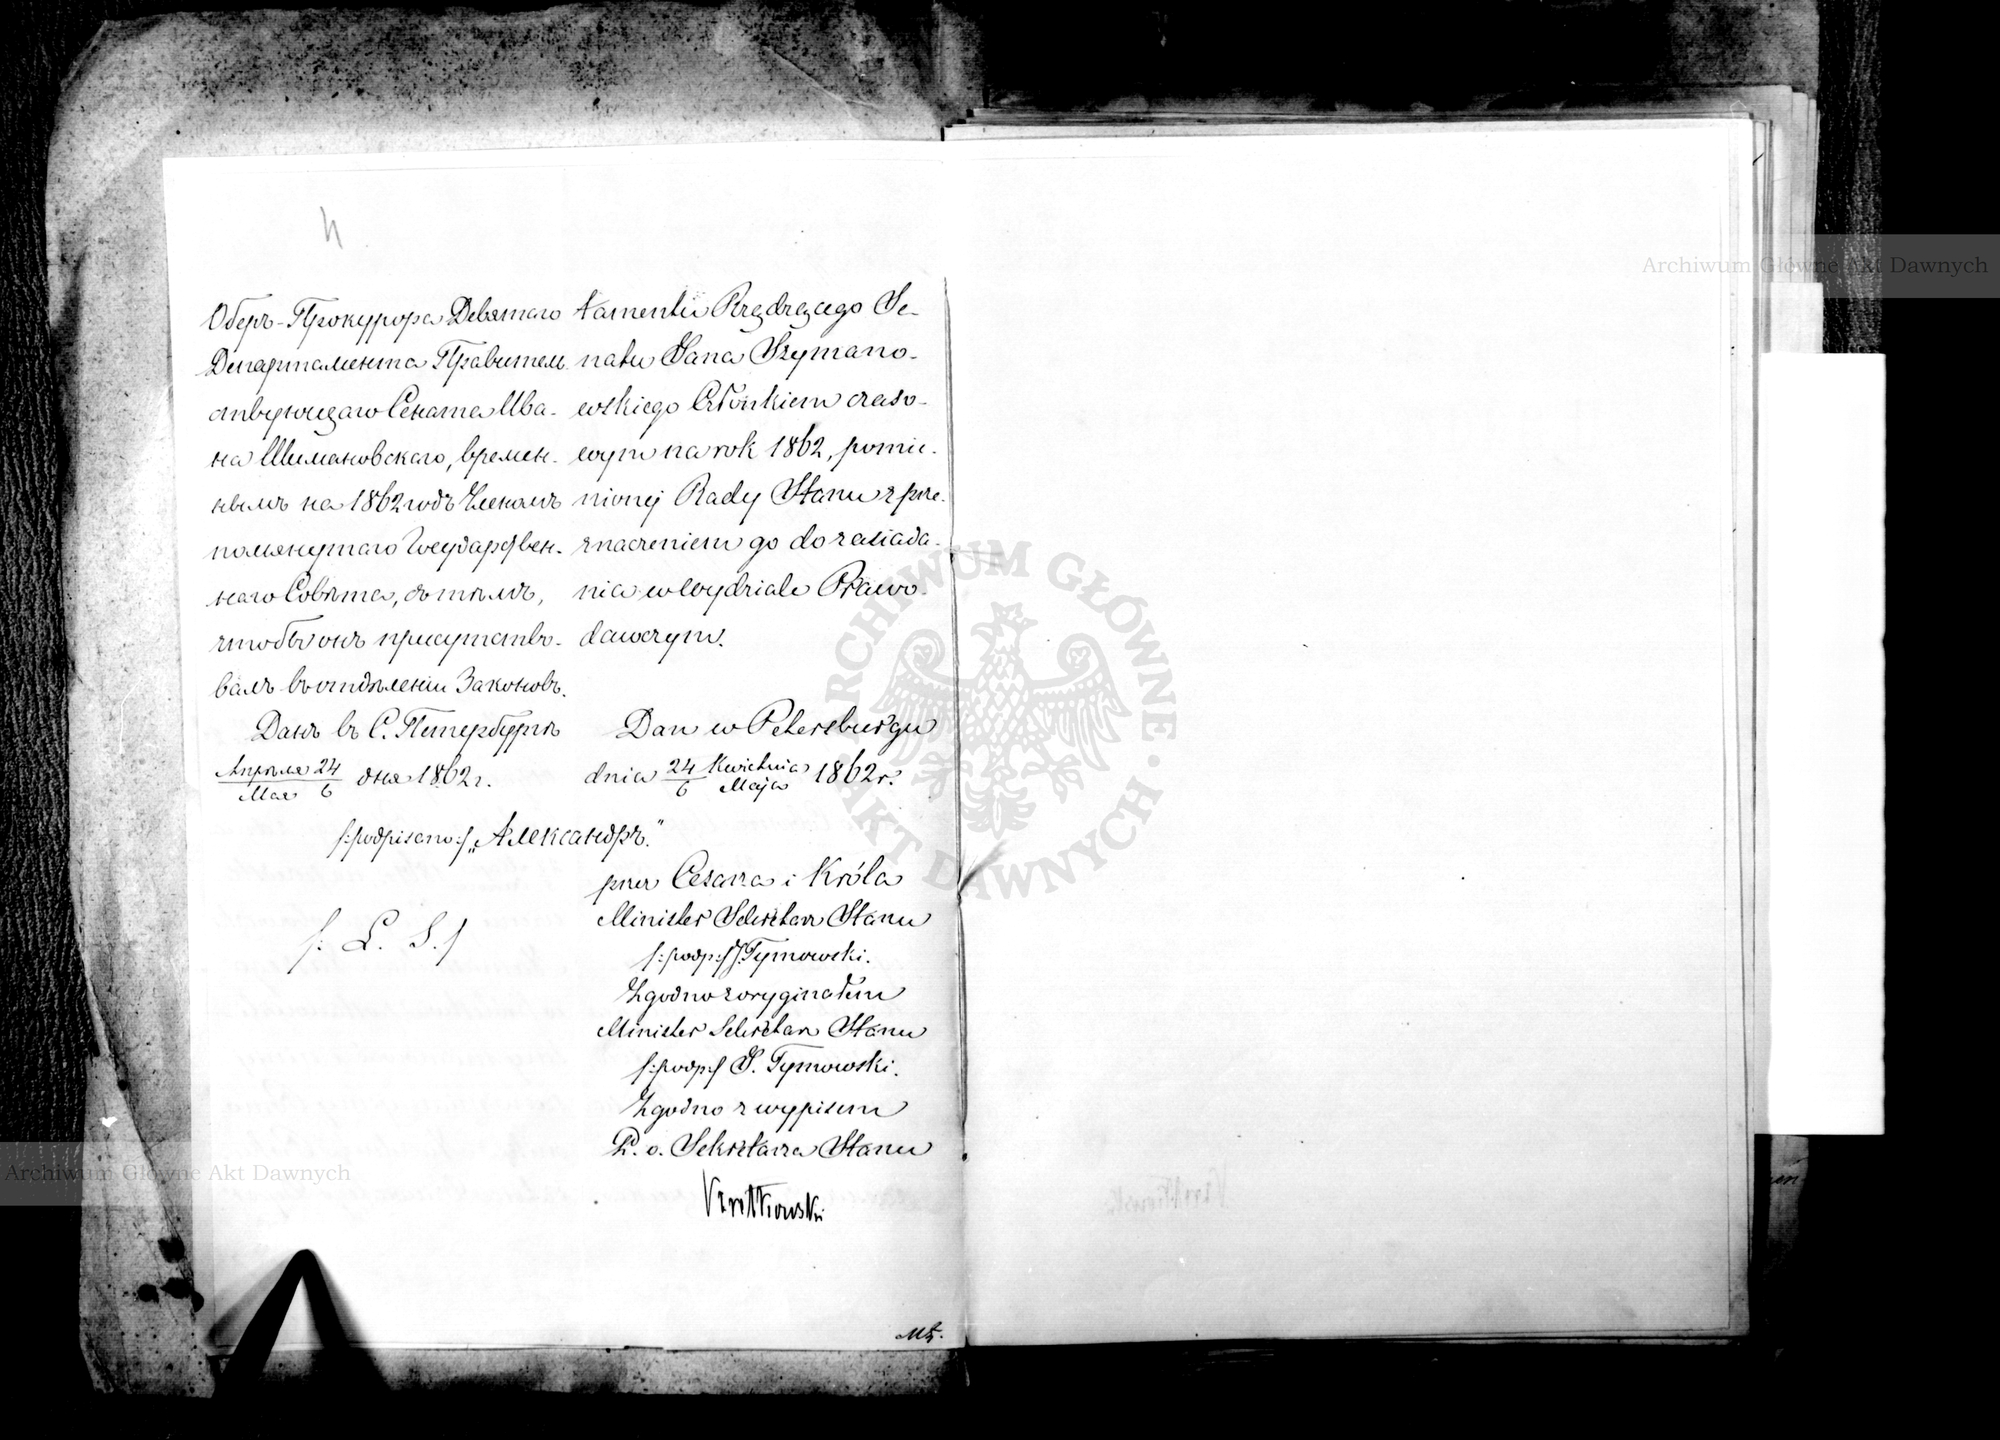 Оберъ-Прокурора Девятаго
Департамента Правитель
ствующаго Сената Ива-
на Шимановскаго, времен-
нымъ на 1862 годъ Членомъ
помянутаго Государствен-
наго Совѣта, съ тѣмъ,
чтобы онъ присутство-
валъ въ отдѣленіи Законовъ.
Данъ въ С. Петербургѣ
Апрѣля 24
Мая 6 дня 1862 г.
tamentu Rządzącego Se-
natu Jana Szymano-
wskiego Członkiem czaso-
wym na rok 1862, pomie-
nionej Rady Stanu z prze-
znaczeniem go do zasiada-
nia w Wydziale Prawo-
dawczym.
Dan w Petersburgu
dnia 24 Kwietnia
6 Maja 1862 r.
/:podpisano:/ „Александръ."
przez Cesarza i Króla
Minister Sekretarz Stanu
/:podp:/ J. Tymowski.
/: L. S. /
Zgodno z oryginałem
Minister Sekretarz Stanu
/:podp:/ J. Tymowski.
Zgodno z wypisem
P. o. Sekretarza Stanu
Archiwum Główne Akt Dawnych
Archiwum Główne Akt Dawnych
ARCHIWUM GŁÓWNE AKT DAWNYCH